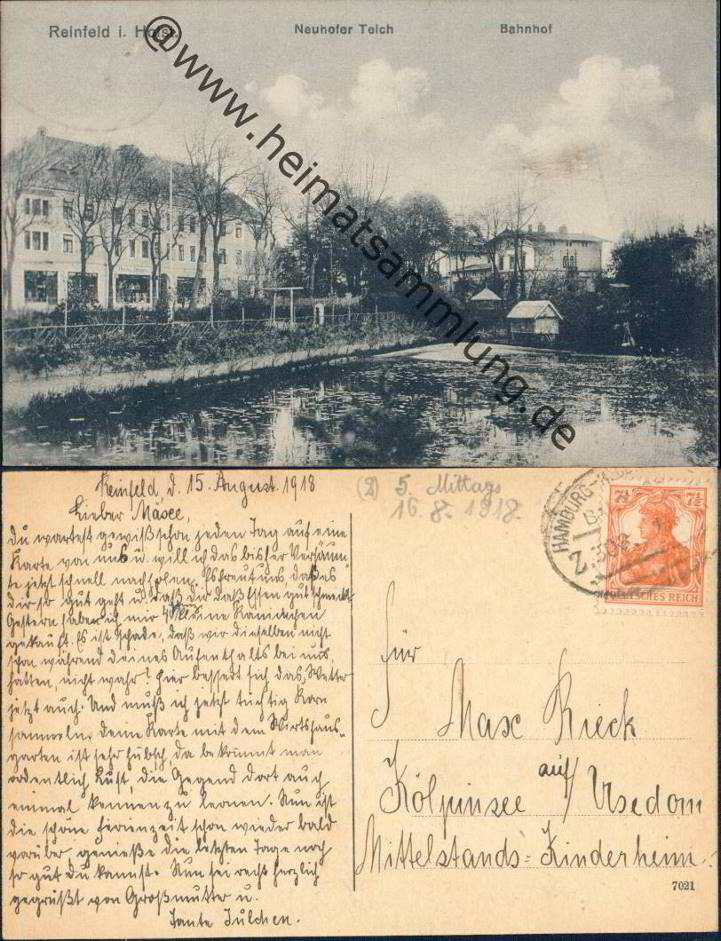 Reinfeld i. Holst.
Neuhofer Teich
Bahnhof
@www.heimatsammlung.de
Reinfeld, d. 15. August. 1918
(2) 5 Mittags
16. 8. 1918.
Lieber Maxe,
du wartest gewiß schon jeden Tag auf eine
Karte von uns u. will ich das bisher Versäum-
te jetzt schnell nachholen. Es freut uns daß es
dir so gut geht u. daß dir das Essen gut schmeckt.
Gestern haben wir nur 4 kleine Kaninchen
gekauft. Es ist schade, daß wir dieselben nicht
schon während deines Aufenthalts bei uns,
hatten, nicht wahr? Hier bessert sich das Wetter
jetzt auch. Und muß ich jetzt tüchtig Korn
sammeln. Deine Karte mit dem Wirtshaus-
garten ist sehr hübsch, da bekommt man
ordentlich Lust, die Gegend dort auch
einmal kennen zu lernen. Nun ist
die schöne Ferienzeit schon wieder bald
vorüber, genieße die letzten Tage noch
so gut du kannst. Nun sei recht herzlich
gegrüßt von Großmutter u.
Tante Julchen.
HAMBURG
Z. 302
7½ 7½
DEUTSCHES REICH
Für
Max Rieck
Kölpinsee auf/Usedom
Mittelstands-Kinderheim.
7021